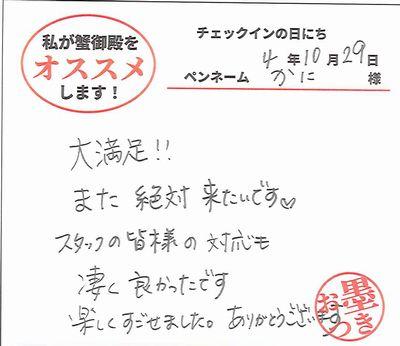 私が蟹御殿を
オススメ
します！
チェックインの日にち
4年10月29日
ペンネーム かに 様
大満足!!
また 絶対 来たいです♡
スタッフの皆様の対応も
凄く 良かったです
楽しくすごせました。ありがとうございます
お墨つき